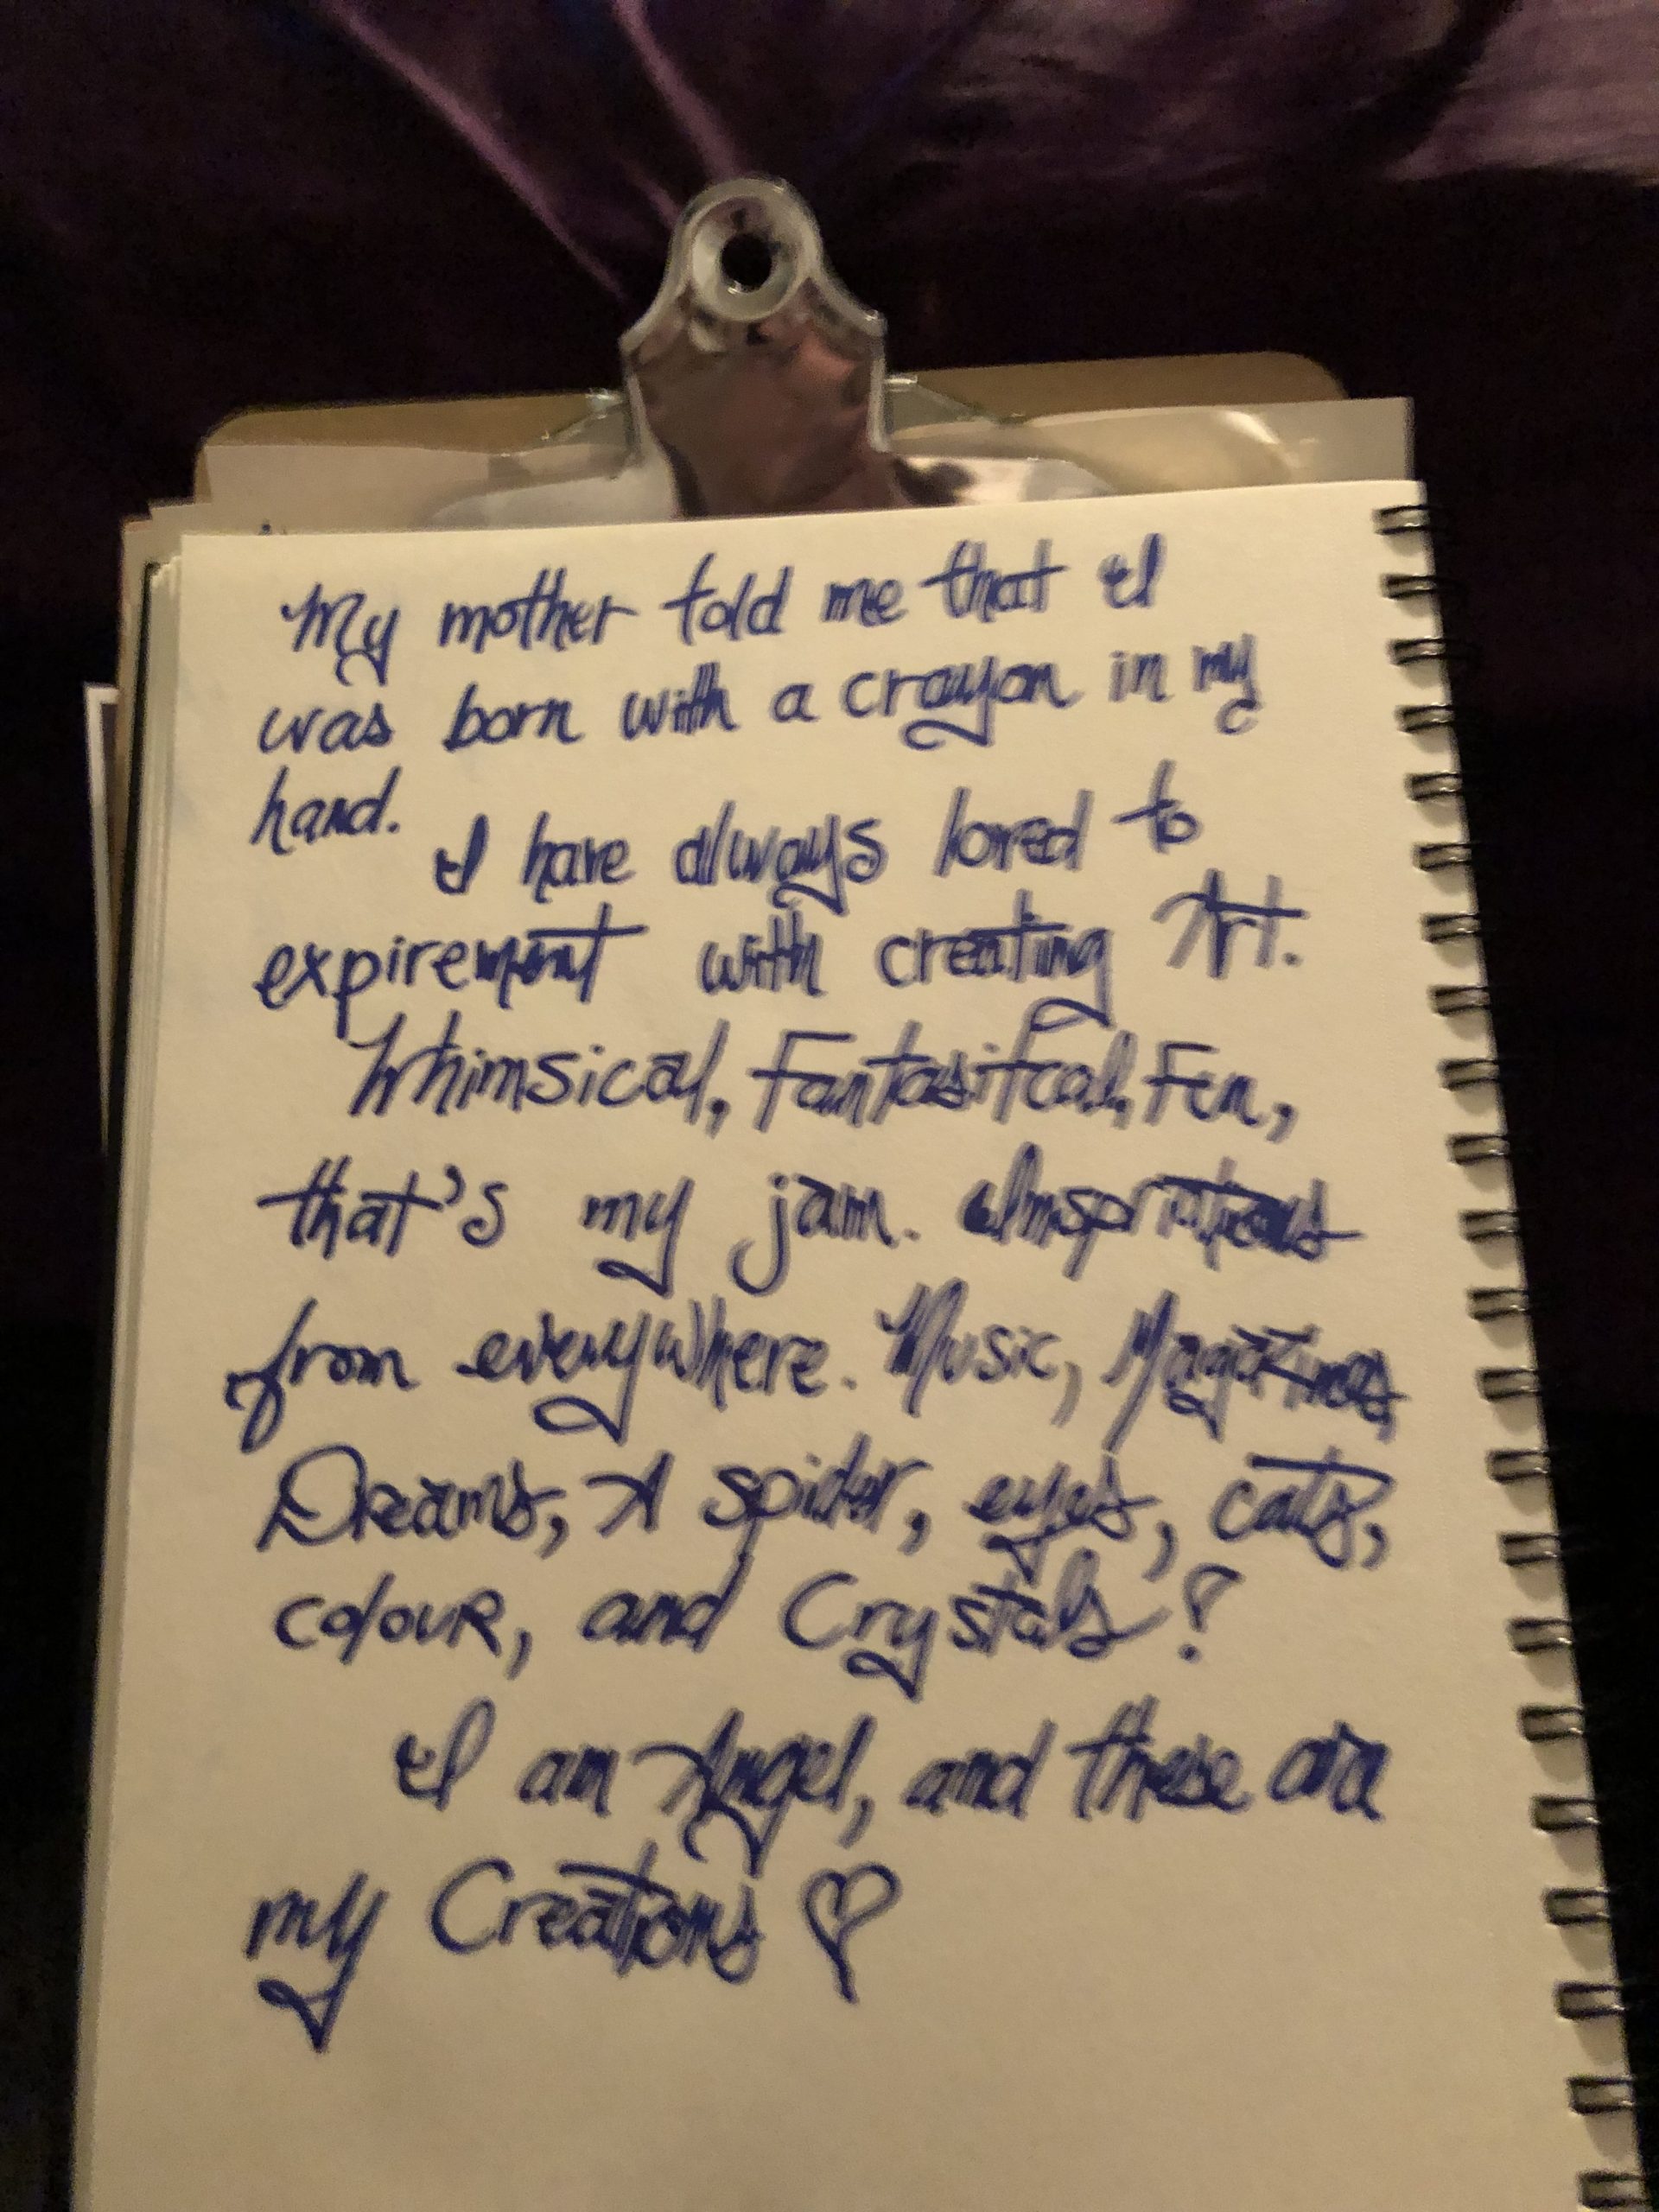 My mother told me that I
was born with a crayon in my
hand.
I have always loved to
expirement with creating Art.
Whimsical, Fantasitcal, Fun,
that's my jam. Inspriations
from everywhere. Music, Magazines,
Dreams, A spider, eyes, cats,
colouR, and Crystals!
I am Angel, and these are
my Creations ♡